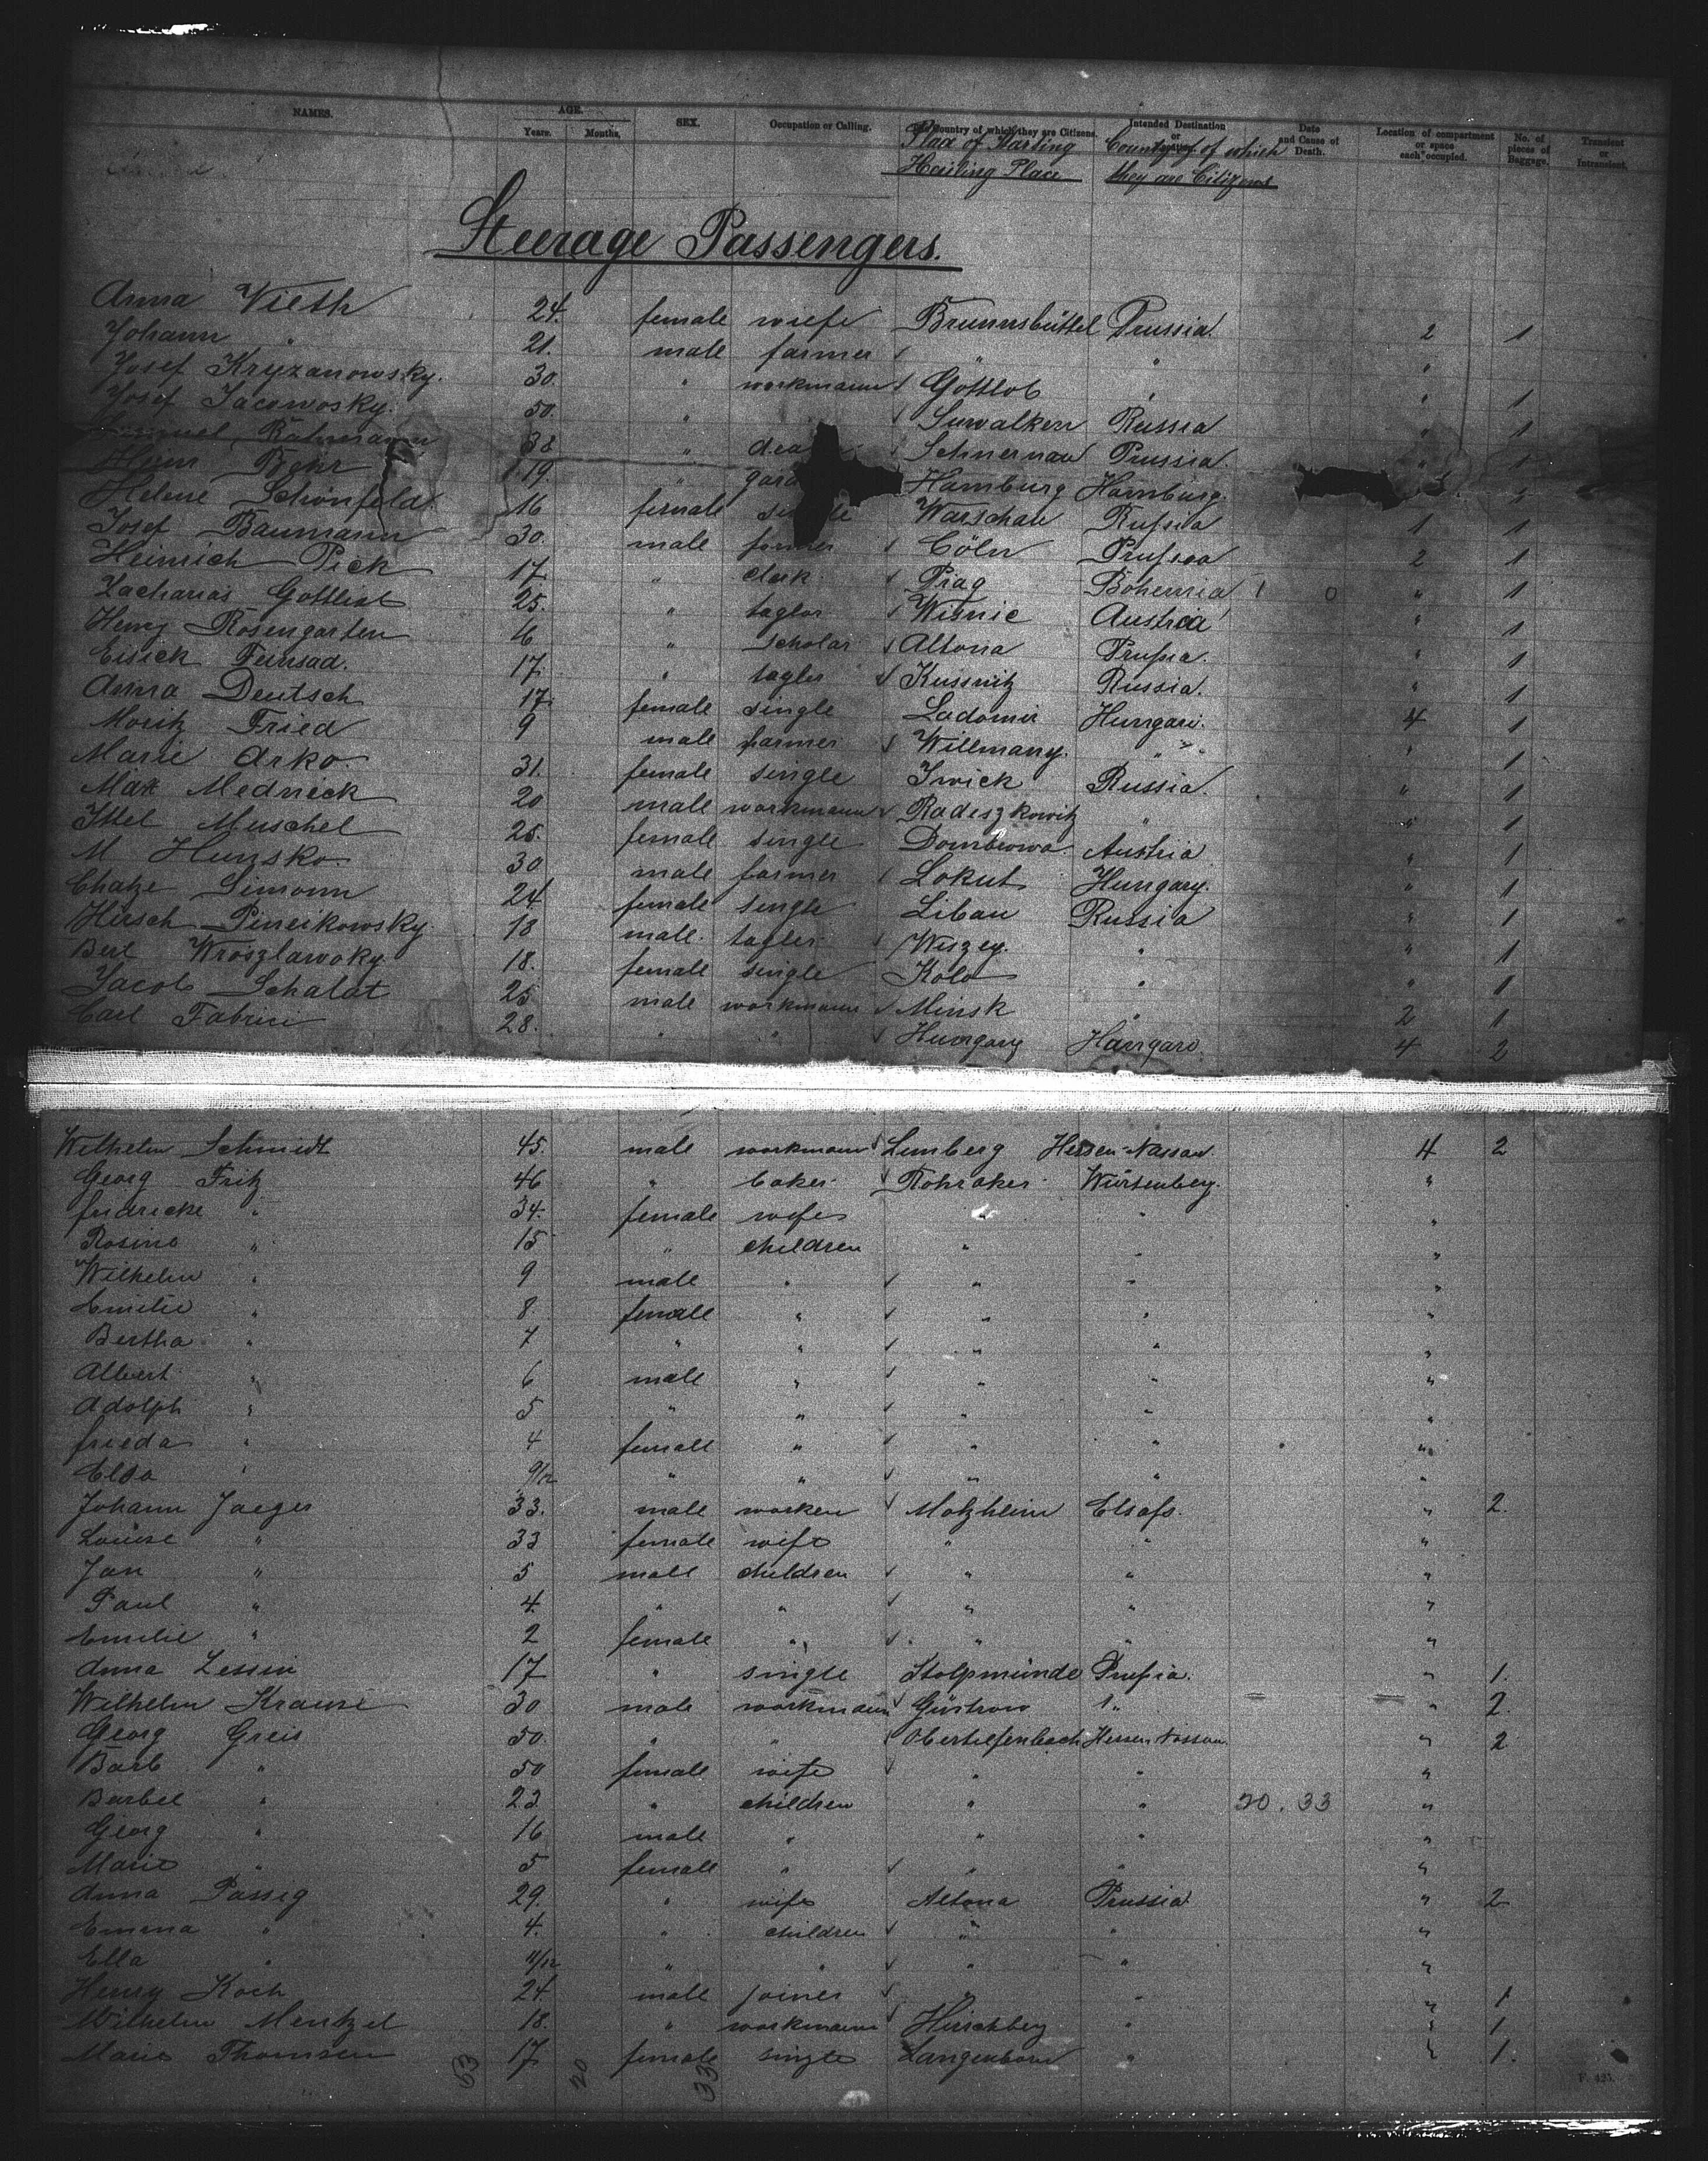 NAMES. AGE. Years. Months. SEX. Occupation or Calling. Country of which they are Citizens. Intended Destination or Date and Cause of Death. Location of compartment or space each occupied. No. of pieces of Baggage. Transient or Intransient.
Place of Starting County of which
Hailing Place they are Citizens
Steerage Passengers.
Anna Vieth 24. female wiefe Brunnsbüttel Prussia. 2 1
Johann " 21. male farmer " " "
Josef Kryzanowsky. 30. " workmann Gottlob " " 1
Josef Jacowosky. 50. " Suwalken Russia " 1
Rahmann 38 " Schnernau Prussia. " 1
Behr 19. " Hamburg Hamburg.
Helene Schönfeld. 16 female Warschau Russia 1 1
Josef Baumann 30. male farmer Cöln Prussia 2 1
Heinrich Pick 17 " clerk Prag Bohemia " 1
Zacharias Gottlieb 25. " taylor Wisnic Austria " 1
Henry Rosengarten 16 " scholar Altona Prussia. " 1
Eisick Funsad. 17. " taylor Kussnitz Russia. " 1
Anna Deutsch 17. female single Ladomir Hungari. 4 1
Moritz Fried 9 male farmer Willmany. " " 1
Marie Arko 31. female single Iwick Russia. " 1
Max Mednick 20 male workmann Radeszkowitz " " 1
Ittel Muschel 25. female single Dombrowa. Austria " 1
M Hunsko. 30 male farmer Lokut Hungary. " 1
Chatze Simonn 24. female single Libau Russia " 1
Hirsch Pineikowsky. 18 male. tayler Wiszey. " " 1
Bert Wroszlawsky 18. female single Kolo " " 1
Jacob Schalat 25 male workmann Minsk " 2 1
Carl Fabrici 28. " " Hungary Hungaro. 4 2
Wilhelm Schmidt 45. male workmann Limberg Hessen-Nassau. 4 2
Georg Fritz 46 " baker Rohraker Würtemberg. "
fridricke " 34. female wife " " "
Rosine " 15 " children " " "
Wilhelm " 9 male " " " "
Emilie " 8. female " " " "
Bertha " 7 " " " " "
Albert " 6 male " " " "
Adolph " 5 " " " " "
frieda " 4 female " " " "
Elsa " 9/12 " " " " "
Johann Jaeger 33. male worken Motzheim Elsass. " 2.
Louise " 33 female wife " " "
Jan " 5 male children " " "
Paul " 4. " " " " "
Emilie " 2 female " " " "
Anna Lessin 17 " single Stolpmünde Prussia. " 1.
Wilhelm Krause 30 male workmann Güstrow " " 2.
Georg Greis 50. " " Obertiefenbach Hessen Nassau " 2
Barb " 50 female wife " " "
Barbel " 23 " children " " 20.33 "
Georg " 16 male " " " "
Marie " 5 female " " " "
Anna Passig 29. " wife Altona Prussia " 2
Emma " 4. " children " " "
Ella " 11/12 " " " " "
Henry Koch 24. male joiner " " " 1
Wilhelm Mentzel 18. " workmann Hirschberg " " 1
Marie Thomsen 17. female single Langenhorn " " 1.
63 20 33